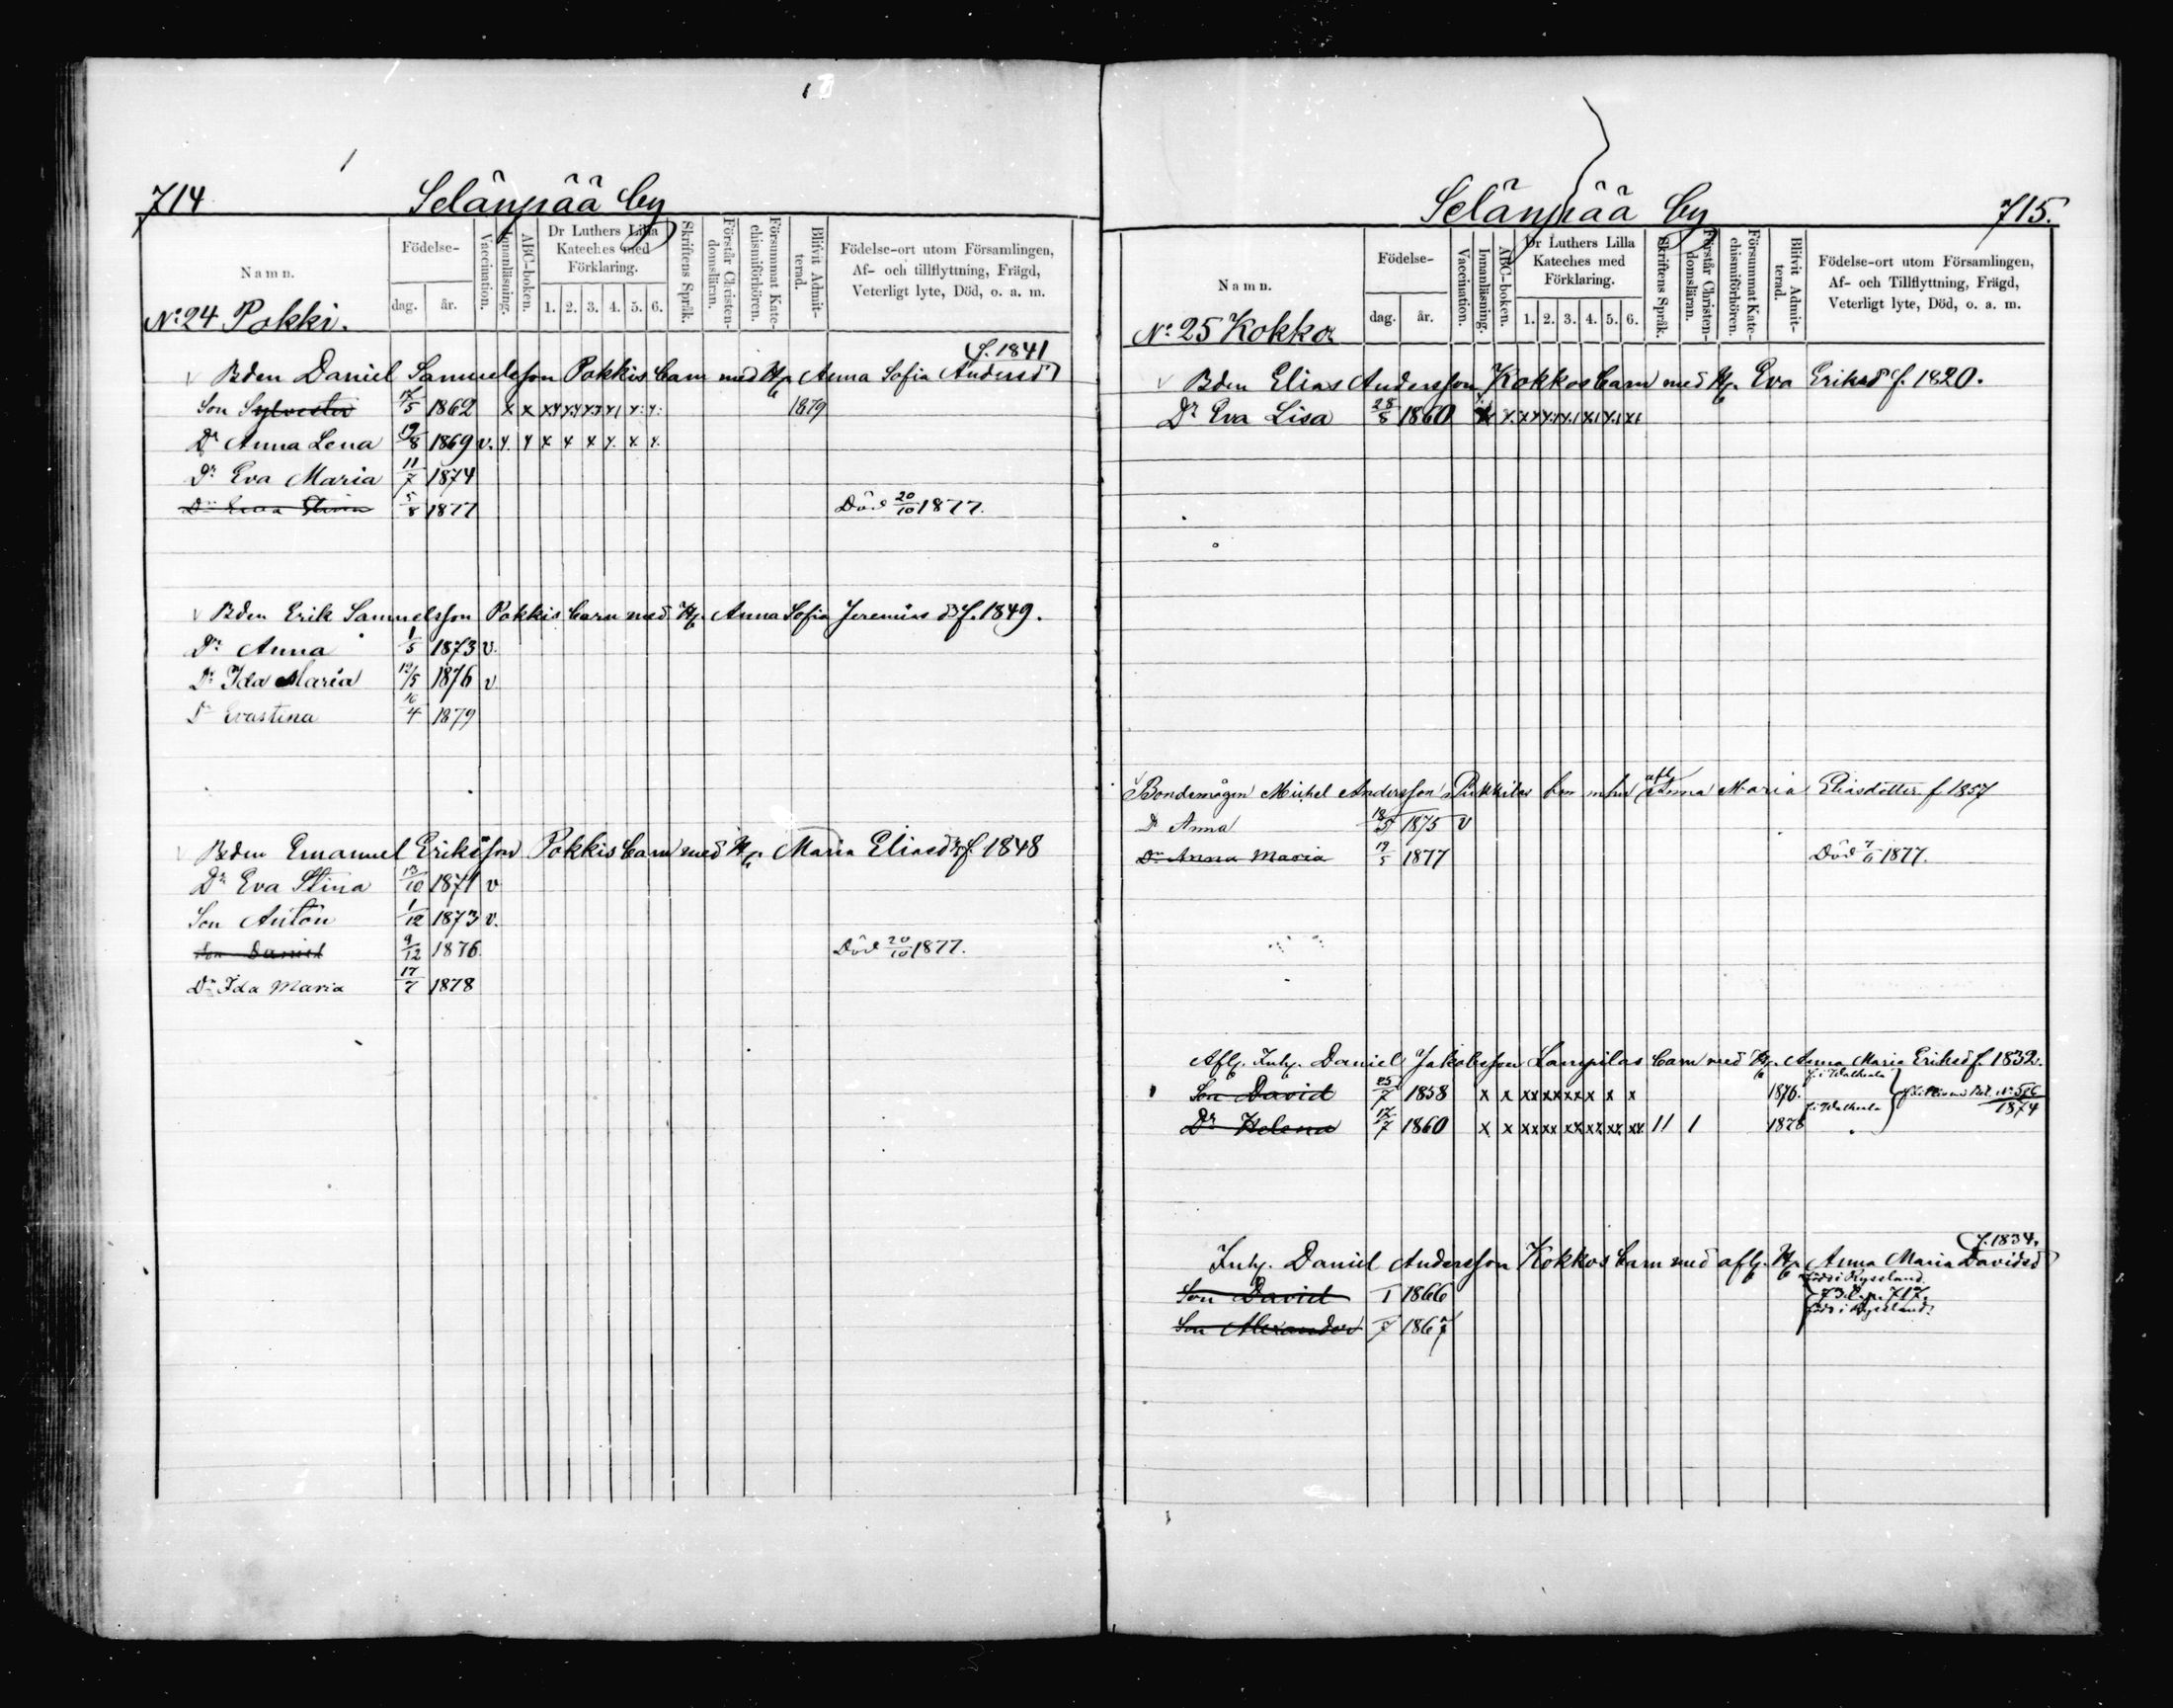 714 Selänpää by
Namn.
Födelse-
dag. år.
Vaccination.
Innanläsning.
ABC-boken.
Dr Luthers Lilla Kateches med Förklaring.
1. 2. 3. 4. 5. 6.
Skriftens Språk.
Förstår Christendomsläran.
Försummat Katechismiförhören.
Blifvit Admitterad.
Födelse-ort utom Församlingen, Af- och tillflyttning, Frägd, Veterligt lyte, Död, o. a. m.
No 24 Pokki.
f. 1841
v Bden Daniel Samuelsson Pokkis barn med Hu Anna Sofia Andersdr
Son Sylvester 12/5 1862 x x 1879
Dr Anna Lena 19/8 1869 v. x x x x x x x x
Dr Eva Maria 11/7 1874
Dr Eva Stina 5/8 1877 Död 20/10 1877.
v Bden Erik Samuelsson Pokkis barn med Hu Anna Sofia Jeremiasdr f. 1849.
Dr Anna 1/5 1873 v.
Dr Ida Maria 12/5 1876 v
Dr Evastina 16/4 1879
v Bden Emanuel Eriksson Pokkis barn med Hu Maria Eliasdr f. 1848
Dr Eva Stina 13/10 1871 v
Son Anton 1/12 1873 v.
Son Daniel 9/12 1876. Död 20/10 1877.
Dr Ida Maria 17/7 1878
Selänpää by 715.
Namn.
Födelse-
dag. år.
Vaccination.
Innanläsning.
ABC-boken.
Dr Luthers Lilla Kateches med Förklaring.
1. 2. 3. 4. 5. 6.
Skriftens Språk.
Förstår Christendomsläran.
Försummat Katechismiförhören.
Blifvit Admitterad.
Födelse-ort utom Församlingen, Af- och Tillflyttning, Frägd, Veterligt lyte, Död, o. a. m.
No 25 Kokko
v Bden Elias Andersson Kokkos barn med Hu Eva Eriksdr f. 1820.
Dr Eva Lisa 28/8 1860
v Bondemågen Michel Andersson Pukkilas bm m hu afl Anna Maria Eliasdotter f 1857
Dr Anna 18/5 1875 v
Dr Anna Maria 19/5 1877 Död 7/6 1877.
Aflg. Inh. Daniel Jakobsson Lampilas barn med Hu Anna Maria Eriksd f. 1832.
Son David 25/7 1858 x x xx xx xx x x x 1876. f. i Walkeala
1874
Dr Helena 12/7 1860 x x xx xx xx xx xx xx 11 1 1878 f. i Walkeala
f. 1834.
Inh. Daniel Andersson Kokkos barn med aflg. Hu Anna Maria Davidsd
Son David 1 1866 född i Ryssland.
73. L. p. 717.
Son Alexander 7 1867 född i Ryssland.